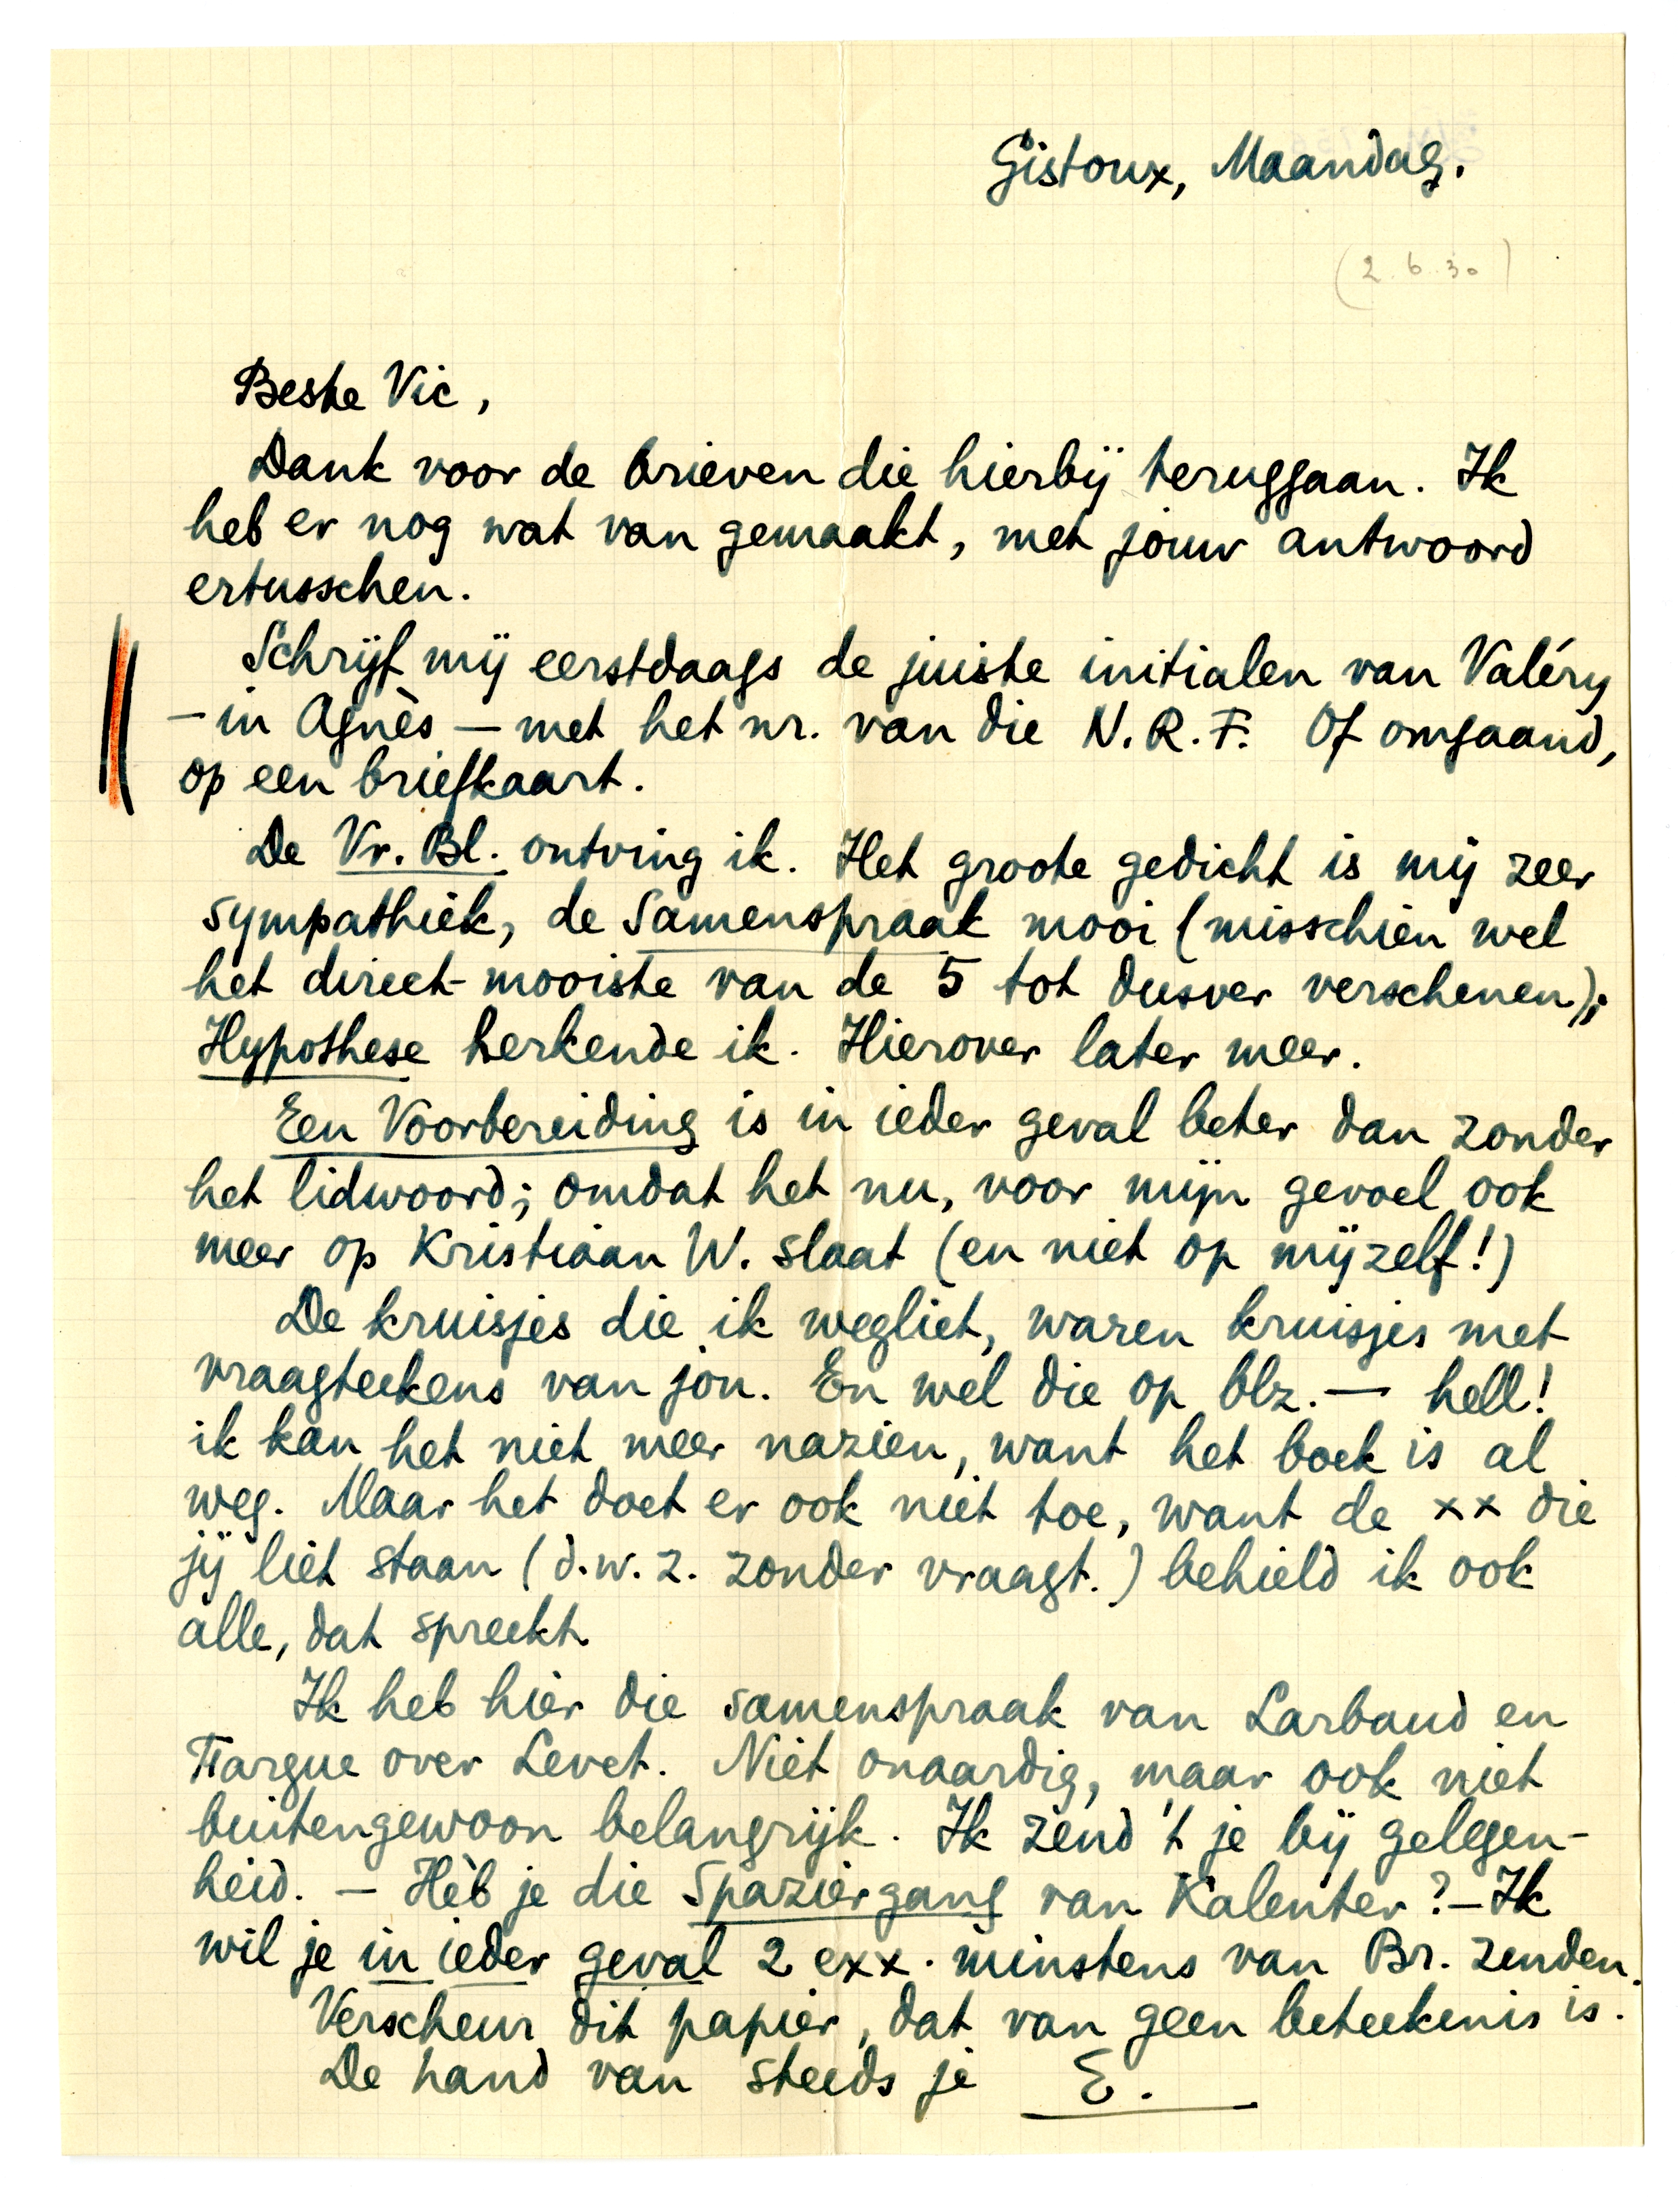 Gistoux, Maandag.
(2.6.30)
Beste Vic,
Dank voor de brieven die hierbij teruggaan. Ik
heb er nog wat van gemaakt, met jouw antwoord
ertusschen.
Schrijf mij eerstdaags de juiste initialen van Valéry
– in Agnès – met het nr. van die N.R.F. Of omgaand,
op een briefkaart.
De Vr. Bl. ontving ik. Het groote gedicht is mij zeer
sympathiek, de Samenspraak mooi (misschien wel
het direct-mooiste van de 5 tot dusver verschenen);
Hypothese herkende ik. Hierover later meer.
Een Voorbereiding is in ieder geval beter dan zonder
het lidwoord; omdat het nu, voor mijn gevoel ook
meer op Kristiaan W. slaat (en niet op mijzelf!)
De kruisjes die ik wegliet, waren kruisjes met
vraagteekens van jou. En wel die op blz. — hell!
ik kan het niet meer nazien, want het boek is al
weg. Maar het doet er ook niet toe, want de xx die
jij liet staan (d.w.z. zonder vraagt.) behield ik ook
alle, dat spreekt.
Ik heb hier die samenspraak van Larbaud en
Fargue over Levet. Niet onaardig, maar ook niet
buitengewoon belangrijk. Ik zend 't je bij gelegen-
heid. – Hèb je die Spaziergang van Kalenter? – Ik
wil je in ieder geval 2 exx. minstens van Br. zenden.
Verscheur dit papier, dat van geen beteekenis is.
De hand van steeds je E.